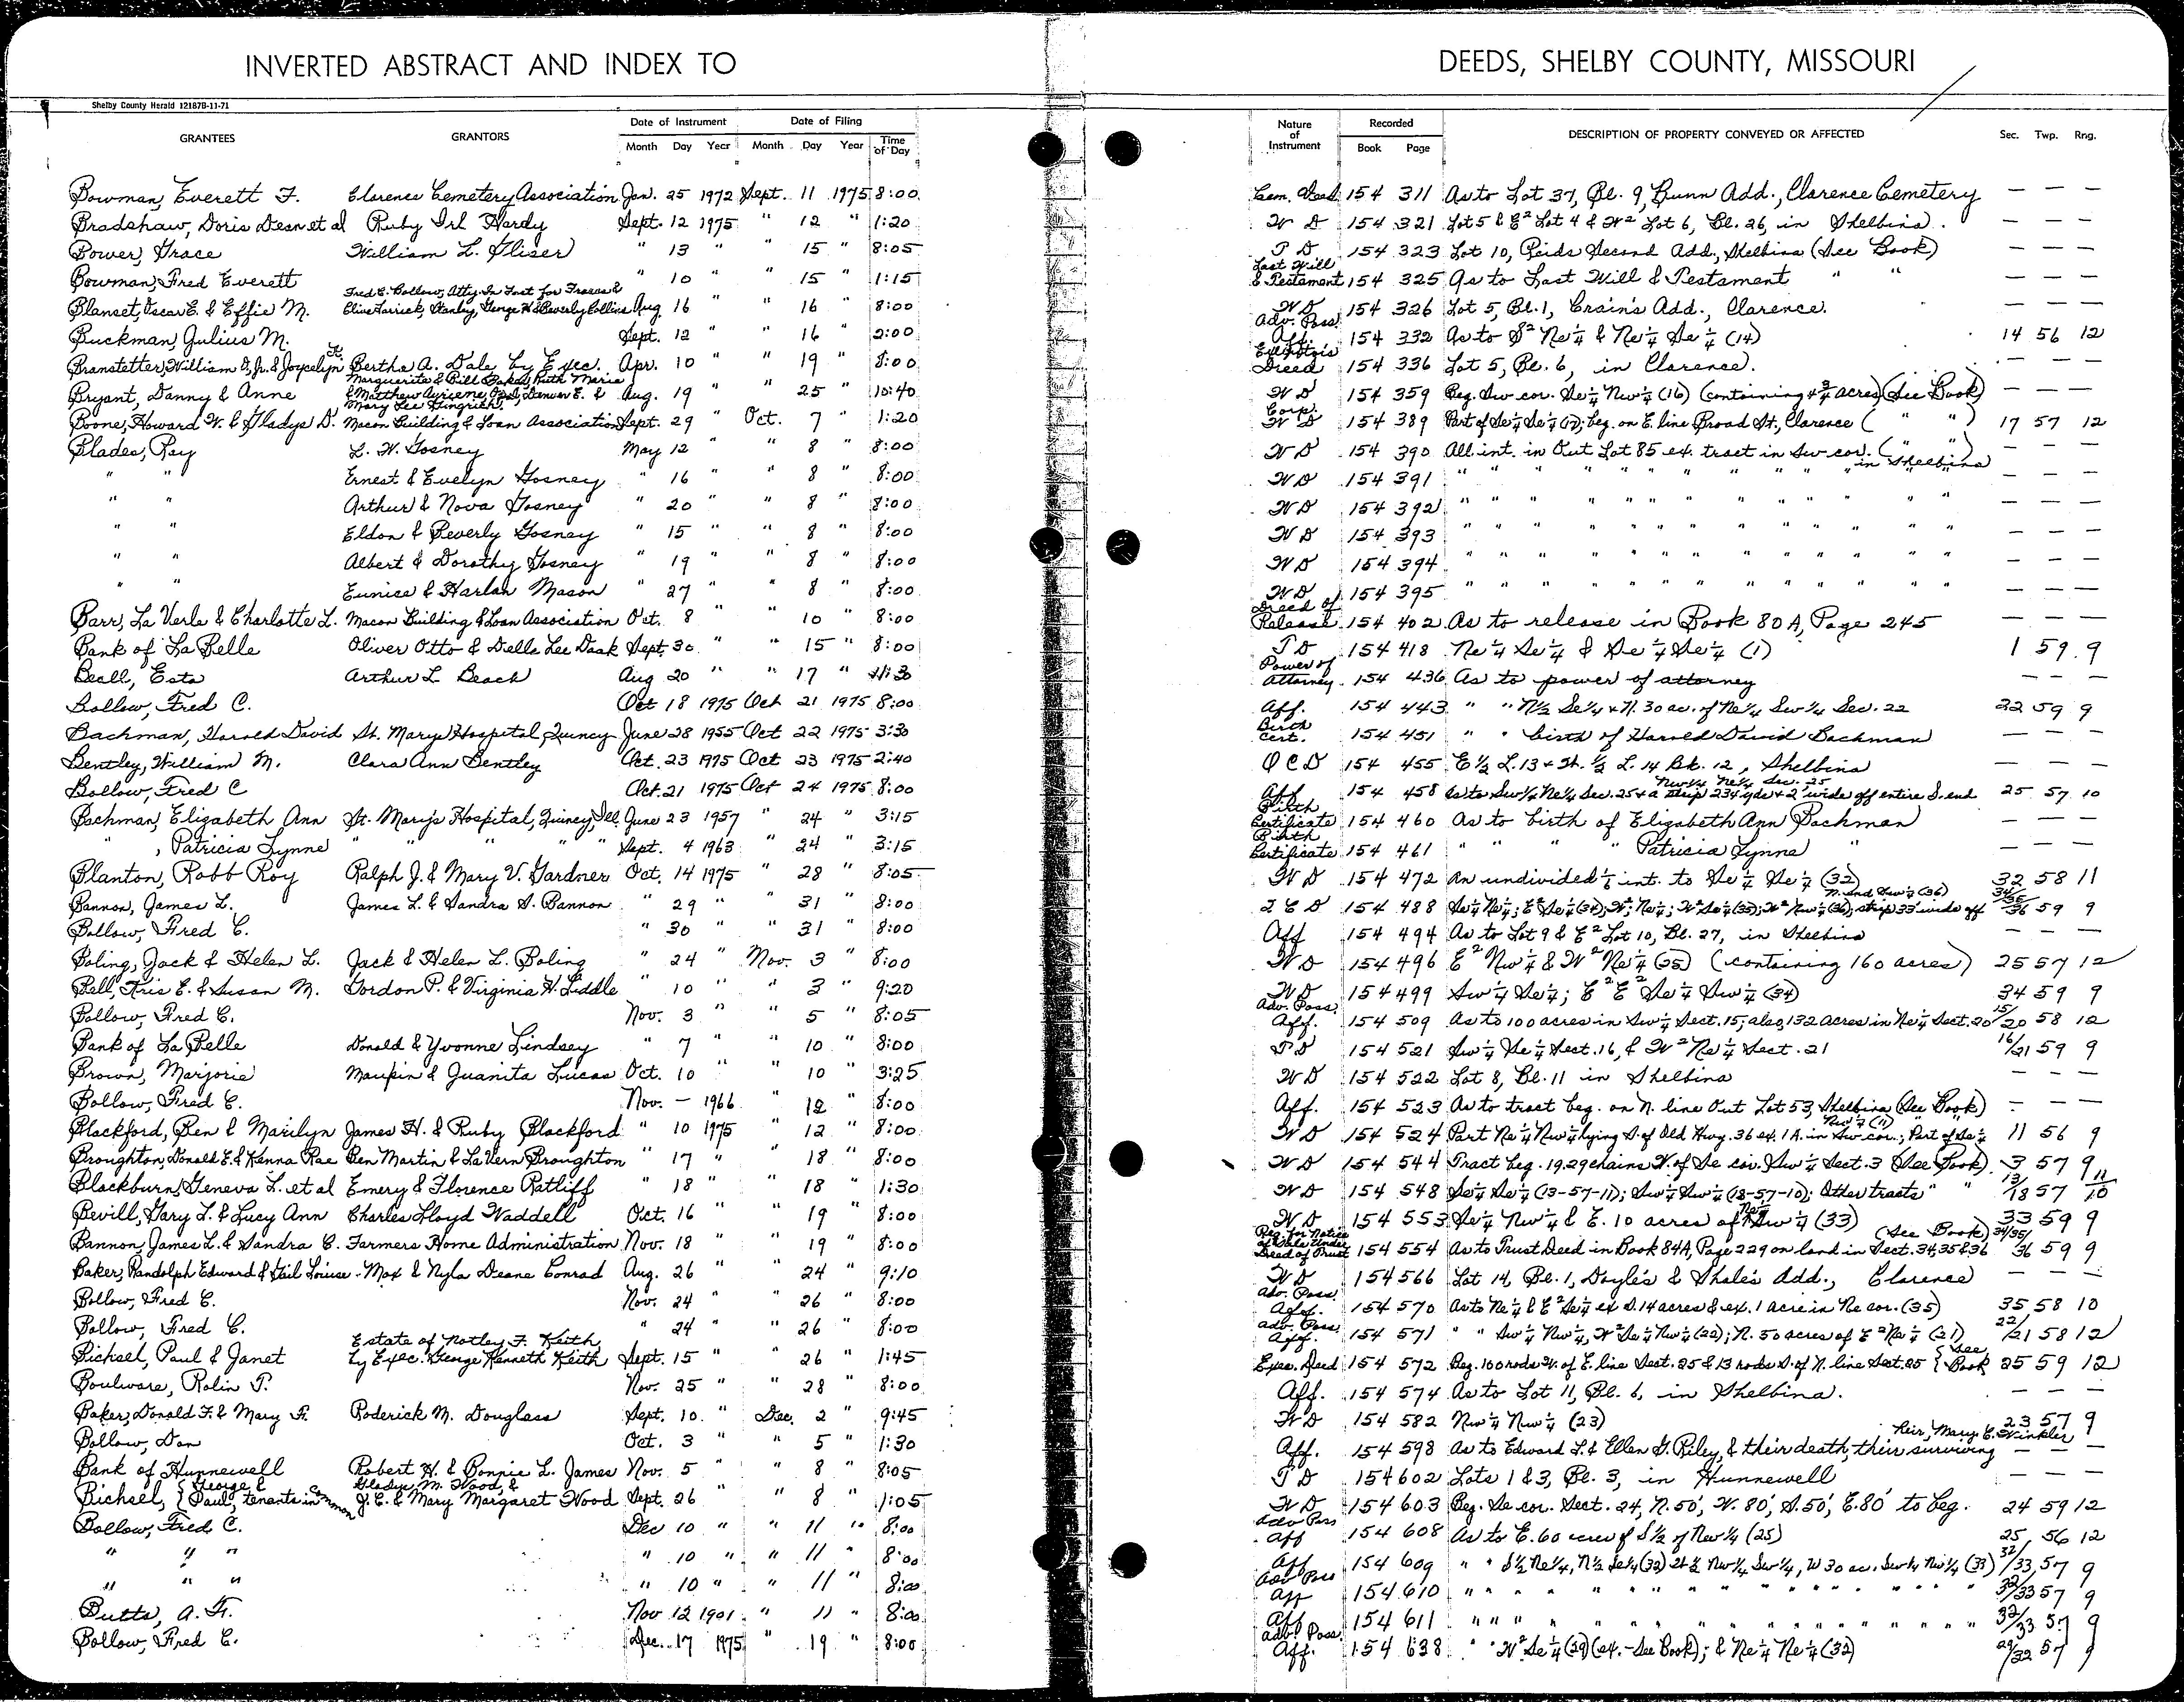 INVERTED ABSTRACT AND INDEX TO DEEDS, SHELBY COUNTY, MISSOURI
Shelby County Herald 121878-11-71
GRANTEES GRANTORS Date of Instrument Month Day Year Date of Filing Month Day Year Time of Day Nature of Instrument Recorded Book Page DESCRIPTION OF PROPERTY CONVEYED OR AFFECTED Sec. Twp. Rng.
Bowman, Everett F. Clarence Cemetery Association Jan. 25 1972 Sept. 11 1975 8:00 Cem. Deed 154 311 As to Lot 37, Bl. 9, Bunn Add., Clarence Cemetery — — —
Bradshaw, Doris Dean et al Ruby Irl Hardy Sept. 12 1975 " 12 " 1:20 W D 154 321 Lot 5 & E² Lot 4 & W² Lot 6, Bl. 26, in Shelbina. — — —
Bower, Grace William L. Gliser " 13 " " 15 " 8:05 T D 154 323 Lot 10, Reids Second Add., Shelbina (See Book) — — —
Bowman, Fred Everett " 10 " " 15 " 1:15 Last Will & Testament 154 325 As to Last Will & Testament " " — — —
Blanset, Oscar E. & Effie M. Fred C. Bollow, Atty. In Fact for Frances & Clive Farrick, Stanley, George H. & Beverly Collins Aug 16 " " 16 " 8:00 W D 154 326 Lot 5, Bl. 1, Crain's Add., Clarence. — — —
Buckman, Julius M. Sept. 12 " " 16 " 2:00 Adv. Poss. Aff. 154 332 As to S² Ne¼ & Ne¼ Se¼ (14) 14 56 12
Branstetter, William D., Jr. & Joycelyn Bertha A. Dale by Exec. Apr. 10 " " 19 " 8:00 Executor's Deed 154 336 Lot 5, Bl. 6, in Clarence. — — —
Bryant, Danny & Anne Marguerite & Bill Baker, Ruth Marie & Matthew Denver E. & Mary Lee Gingrich Aug. 19 " " 25 " 10:40 W D 154 359 Beg. Sw cor. Se¼ Nw¼ (16) (containing 4¾ acres) (See Book) — — —
Boone, Howard W. & Gladys D. Macon Building & Loan Association Sept. 29 " Oct. 7 " 1:20 Corp. W D 154 389 Part of Se¼ Se¼ (17); beg. on E. line Broad St., Clarence ( " " ) 17 57 12
Blades, Ray L. W. Gosney May 12 " 8 " 8:00 W D 154 390 All int. in Out Lot 85 ex. tract in Sw cor. ( " " ) in Shelbina — — —
" " Ernest & Evelyn Gosney " 16 " " 8 " 8:00 W D 154 391 " " " " " " " " " " — — —
" " Arthur & Nova Gosney " 20 " " 8 " 8:00 W D 154 392 " " " " " " " " " " — — —
" " Eldon & Beverly Gosney " 15 " " 8 " 8:00 W D 154 393 " " " " " " " " " " — — —
" " Albert & Dorothy Gosney " 19 " " 8 " 8:00 W D 154 394 " " " " " " " " " " — — —
" " Eunice & Harlan Mason " 27 " " 8 " 8:00 W D 154 395 " " " " " " " " " " — — —
Barr, La Verle & Charlotte L. Macon Building & Loan Association Oct. 8 " " 10 " 8:00 Deed of Release 154 402 As to release in Book 80A, Page 245 — — —
Bank of La Belle Oliver Otto & Della Lee Daak Sept. 30 " " 15 " 8:00 T D 154 418 Ne¼ Se¼ & Se¼ Se¼ (1) 1 59 9
Beall, Esta Arthur L. Beach Aug 20 " " 17 " 11:30 Power of Attorney 154 436 As to power of attorney — — —
Bollow, Fred C. Oct 18 1975 Oct 21 1975 8:00 Aff. 154 443 " " N½ Se¼ & N. 30 ac. of Ne¼ Sw¼ Sec. 22 22 59 9
Bachman, Harold David St. Marys Hospital, Quincy June 28 1955 Oct 22 1975 3:30 Birth Cert. 154 451 " " birth of Harold David Bachman — — —
Bentley, William M. Clara Ann Bentley Oct. 23 1975 Oct 23 1975 2:40 Q C D 154 455 E½ L. 13 & W. ½ L. 14 Bk. 12, Shelbina — — —
Bollow, Fred C Oct. 21 1975 Oct 24 1975 8:00 Aff 154 458 As to Sw¼ Ne¼ Sec. 25 & a strip 234 yds & 2' wide off entire S. end Nw¼ Ne¼ Sec. 25 25 57 10
Bachman, Elizabeth Ann St. Mary's Hospital, Quincy, Ill. June 23 1957 " 24 " 3:15 Birth Certificate 154 460 As to birth of Elizabeth Ann Bachman — — —
" , Patricia Lynne " " " " Sept. 4 1963 " 24 " 3:15 Birth Certificate 154 461 " " " " Patricia Lynne " — — —
Blanton, Robb Roy Ralph J. & Mary V. Gardner Oct. 14 1975 " 28 " 8:05 W D 154 472 An undivided ⅙ int. to Se¼ Se¼ (32) 32 58 11
Bannon, James L. James L. & Sandra S. Bannon " 29 " " 31 " 8:00 Q C D 154 488 Se¼ Ne¼; E² Se¼ (34); W² Ne¼; W² Se¼ (35); W² Nw¼ (36); strip 33' wide off N. end Sw¼ (36) 34/35/36 59 9
Bollow, Fred C. " 30 " " 31 " 8:00 Aff 154 494 As to Lot 9 & E² Lot 10, Bl. 27, in Shelbina — — —
Boling, Jack & Helen L. Jack & Helen L. Boling " 24 " Nov. 3 " 8:00 W D 154 496 E² Nw¼ & W² Ne¼ (25) (containing 160 acres) 25 57 12
Bell, Kris E. & Susan M. Gordon P. & Virginia H. Liddle " 10 " " 3 " 9:20 W D 154 499 Sw¼ Se¼; E² E² Se¼ Sw¼ (34) 34 59 9
Bollow, Fred C. Nov. 3 " " 5 " 8:05 Adv. Poss. Aff. 154 509 As to 100 acres in Sw¼ Sect. 15; also 132 acres in Ne¼ Sect. 20 15/20 58 12
Bank of La Belle Donald & Yvonne Lindsey " 7 " " 10 " 8:00 T D 154 521 Sw¼ Se¼ Sect. 16, & W² Ne¼ Sect. 21 16/21 59 9
Brown, Marjorie Maupin & Juanita Lucas Oct. 10 " " 10 " 3:25 W D 154 522 Lot 8, Bl. 11 in Shelbina — — —
Bollow, Fred C. Nov. — 1966 " 12 " 8:00 Aff. 154 523 As to tract beg. on N. line Out Lot 53, Shelbina (See Book) — — —
Blackford, Ben & Marilyn James H. & Ruby Blackford " 10 1975 " 12 " 8:00 W D 154 524 Part Ne¼ Nw¼ lying S. of Old Hwy. 36 ex. 1 A. in Sw cor.; Part of Se¼ Nw¼ (11) 11 56 9
Broughton, Donald E. & Kenna Rae Ben Martin & LaVern Broughton " 17 " " 18 " 8:00 W D 154 544 Tract beg. 19.29 chains W. of Se cor. Sw¼ Sect. 3 (See Book) 3 57 9
Blackburn, Geneva L. et al Emery & Florence Ratliff " 18 " " 18 " 1:30 W D 154 548 Se¼ Se¼ (13-57-11); Sw¼ Sw¼ (18-57-10); Other tracts " " 13/18 57 11/10
Bevill, Gary L. & Lucy Ann Charles Lloyd Waddell Oct. 16 " " 19 " 8:00 W D 154 553 Se¼ Nw¼ & E. 10 acres of Ne¼ Sw¼ (33) 33 59 9
Bannon, James L. & Sandra C. Farmers Home Administration Nov. 18 " " 19 " 8:00 Req. for Notice of Sale Under Deed of Trust 154 554 As to Trust Deed in Book 84A, Page 229 on land in Sect. 34, 35 & 36 (See Book) 34/35/36 59 9
Baker, Randolph Edward & Gail Louise - Max & Nyla Deane Conrad Aug. 26 " " 24 " 9:10 W D 154 566 Lot 14, Bl. 1, Doyle's & Shale's Add., Clarence — — —
Bollow, Fred C. Nov. 24 " " 26 " 8:00 Adv. Poss. Aff. 154 570 As to Ne¼ & E² Se¼ ex S. 14 acres & ex. 1 acre in Ne cor. (35) 35 58 10
Bollow, Fred C. " 24 " " 26 " 8:00 Adv. Poss Aff. 154 571 " " Sw¼ Nw¼, W² Se¼ Nw¼ (22); N. 50 acres of E² Ne¼ (21) 22/21 58 12
Bichsel, Paul & Janet Estate of Notley F. Keith, by Exec. George Kenneth Keith Sept. 15 " " 26 " 1:45 Exec. Deed 154 572 Beg. 100 rods W. of E. line Sect. 25 & 13 rods S. of N. line Sect. 25 {See Book 25 59 12
Boulware, Rolin T. Nov. 25 " " 28 " 8:00 Aff. 154 574 As to Lot 11, Bl. 6, in Shelbina. — — —
Baker, Donald F. & Mary F. Roderick M. Douglass Sept. 10 " Dec. 2 " 9:45 W D 154 582 Nw¼ Nw¼ (23) 23 57 9
Bollow, Dan Oct. 3 " " 5 " 1:30 Aff. 154 598 As to Edward L. & Ellen G. Riley, & their death, their surviving heir, Mary C. Winkler — — —
Bank of Hunnewell Robert H. & Bonnie L. James Nov. 5 " " 8 " 8:05 T D 154 602 Lots 1 & 3, Bl. 3, in Hunnewell — — —
Bichsel, {George & Paul, tenants in common Gladys M. Wood, & J. E. & Mary Margaret Wood Sept. 26 " " 8 " 1:05 W D 154 603 Beg. Se cor. Sect. 24, N. 50', W. 80', S. 50', E. 80' to beg. 24 59 12
Bollow, Fred C. Dec 10 " " 11 " 8:00 Adv Poss Aff 154 608 As to E. 60 acres of S½ of Nw¼ (25) 25 56 12
" " " " 10 " " 11 " 8:00 Aff 154 609 " " S½ Ne¼, N½ Se¼ (32) Nw¼ Sw¼, W 30 ac. Sw¼ Nw¼ (33) 32/33 57 9
" " " " 10 " " 11 " 8:00 Adv Poss Aff 154 610 " " " " " " " " " " " " 32/33 57 9
Butts, A. Fr. Nov 12 1901 " 11 " 8:00 Aff 154 611 " " " " " " " " " " " " 32/33 57 9
Bollow, Fred C. Dec. 17 1975 " 19 " 8:00 Adv. Poss. Aff. 154 638 " " W² Se¼ (29) (ex. - See Book); & Ne¼ Ne¼ (32) 29/32 57 9